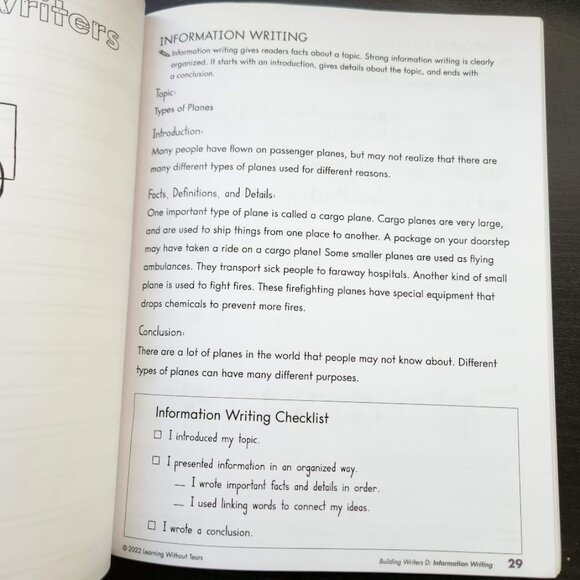 writers
INFORMATION WRITING
Information writing gives readers facts about a topic. Strong information writing is clearly
organized. It starts with an introduction, gives details about the topic, and ends with
a conclusion.
Topic:
Types of Planes
Introduction:
Many people have flown on passenger planes, but may not realize that there are
many different types of planes used for different reasons.
Facts, Definitions, and Details:
One important type of plane is called a cargo plane. Cargo planes are very large,
and are used to ship things from one place to another. A package on your doorstep
may have taken a ride on a cargo plane! Some smaller planes are used as flying
ambulances. They transport sick people to faraway hospitals. Another kind of small
plane is used to fight fires. These firefighting planes have special equipment that
drops chemicals to prevent more fires.
Conclusion:
There are a lot of planes in the world that people may not know about. Different
types of planes can have many different purposes.
Information Writing Checklist
I introduced my topic.
I presented information in an organized way.
I wrote important facts and details in order.
I used linking words to connect my ideas.
I wrote a conclusion.
© 2022 Learning Without Tears
Building Writers D: Information Writing 29